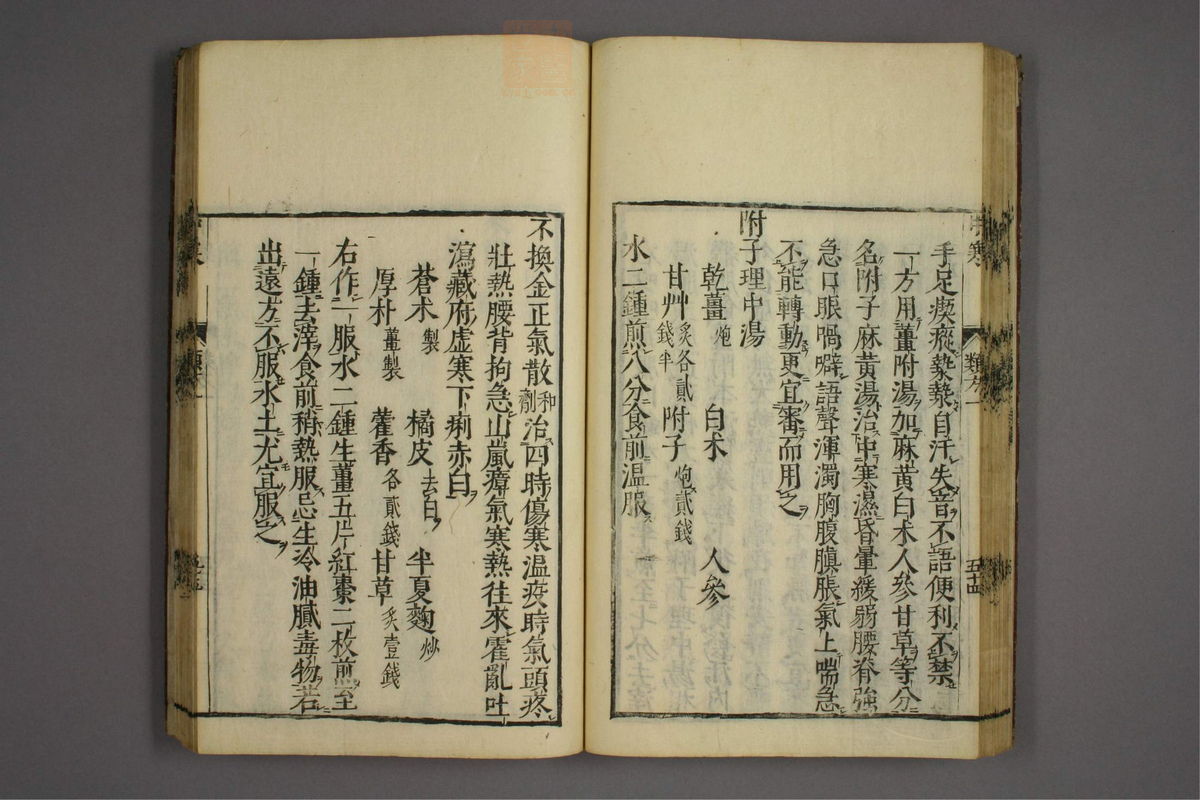 手足瘈瘲漐漐自汗失音不語便利不禁
一方用薑附湯加麻黄白朮人參甘草等分
名附子麻黄湯治中寒濕昏暈緩弱腰脊強
急口眼喎噼語聲渾濁胸腹䐜脹氣上喘急
不能轉動更宜審而用之
附子理中湯
乾薑炮 白朮 人參
甘艸炙各貳錢半 附子炮貳錢
水二鍾煎八分食前温服
不換金正氣散和劑治四時傷寒温疫時氣頭疼
壯熱腰背拘急山嵐瘴氣寒熱往來霍亂吐
瀉藏府虛寒下痢赤白
蒼朮製 橘皮去白 半夏麹炒
厚朴薑製 藿香各貳錢 甘草炙壹錢
右作一服水二鍾生薑五片紅棗二枚煎至
一鍾去滓食前稍熱服忌生冷油膩毒物若
出遠方不服水土尤宜服之